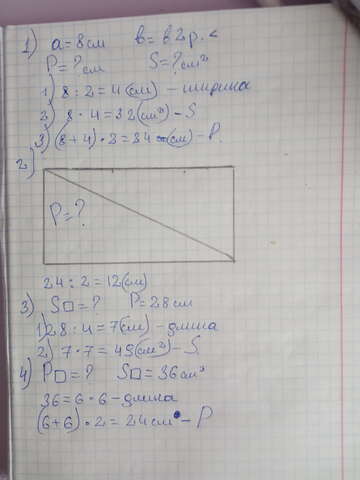 1) a = 8 см b = в 2 р. <
P = ? см S = ? см²
1) 8 : 2 = 4 (см) - ширина
2) 8 · 4 = 32 (см²) - S
3) (8 + 4) · 2 = 24 (см) - P.
2)
P = ?
24 : 2 = 12 (см)
3) S□ = ? P = 28 см
1) 28 : 4 = 7 (см) - длина
2) 7 · 7 = 49 (см²) - S
4) P□ = ? S□ = 36 см²
36 = 6 · 6 - длина
(6 + 6) · 2 = 24 см - P